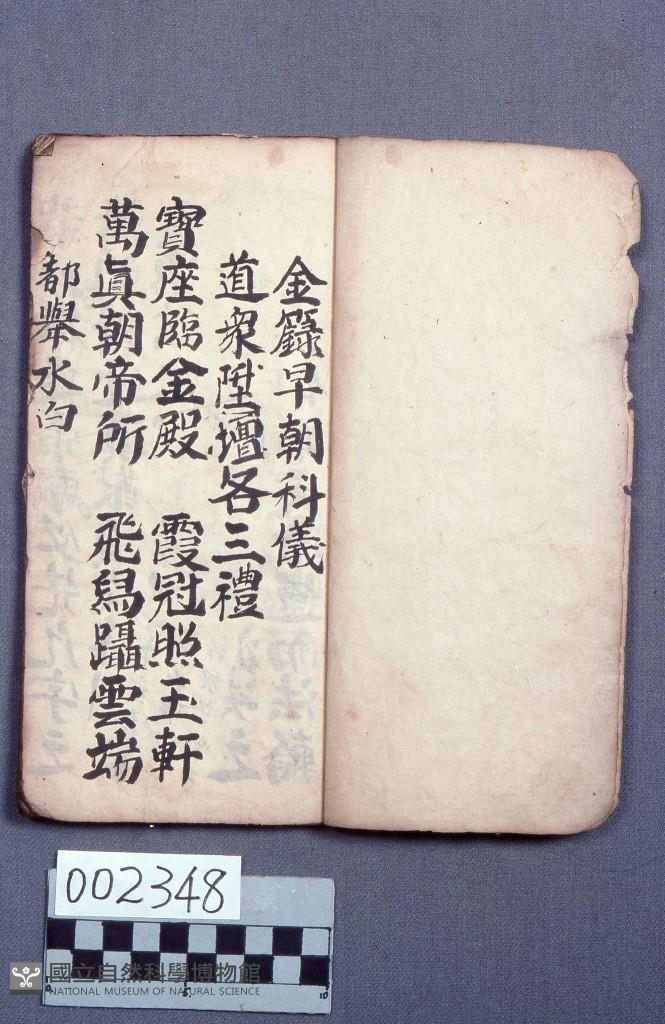 金籙早朝科儀
道衆陞壇各三禮
寶座臨金殿 霞冠照玉軒
萬眞朝帝所 飛舄躡雲端
都舉水白
002348
國立自然科學博物館
NATIONAL MUSEUM OF NATURAL SCIENCE
0 5 10